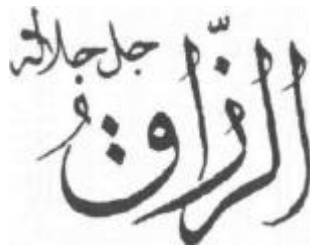 الرّزاقُ
جل جلاله